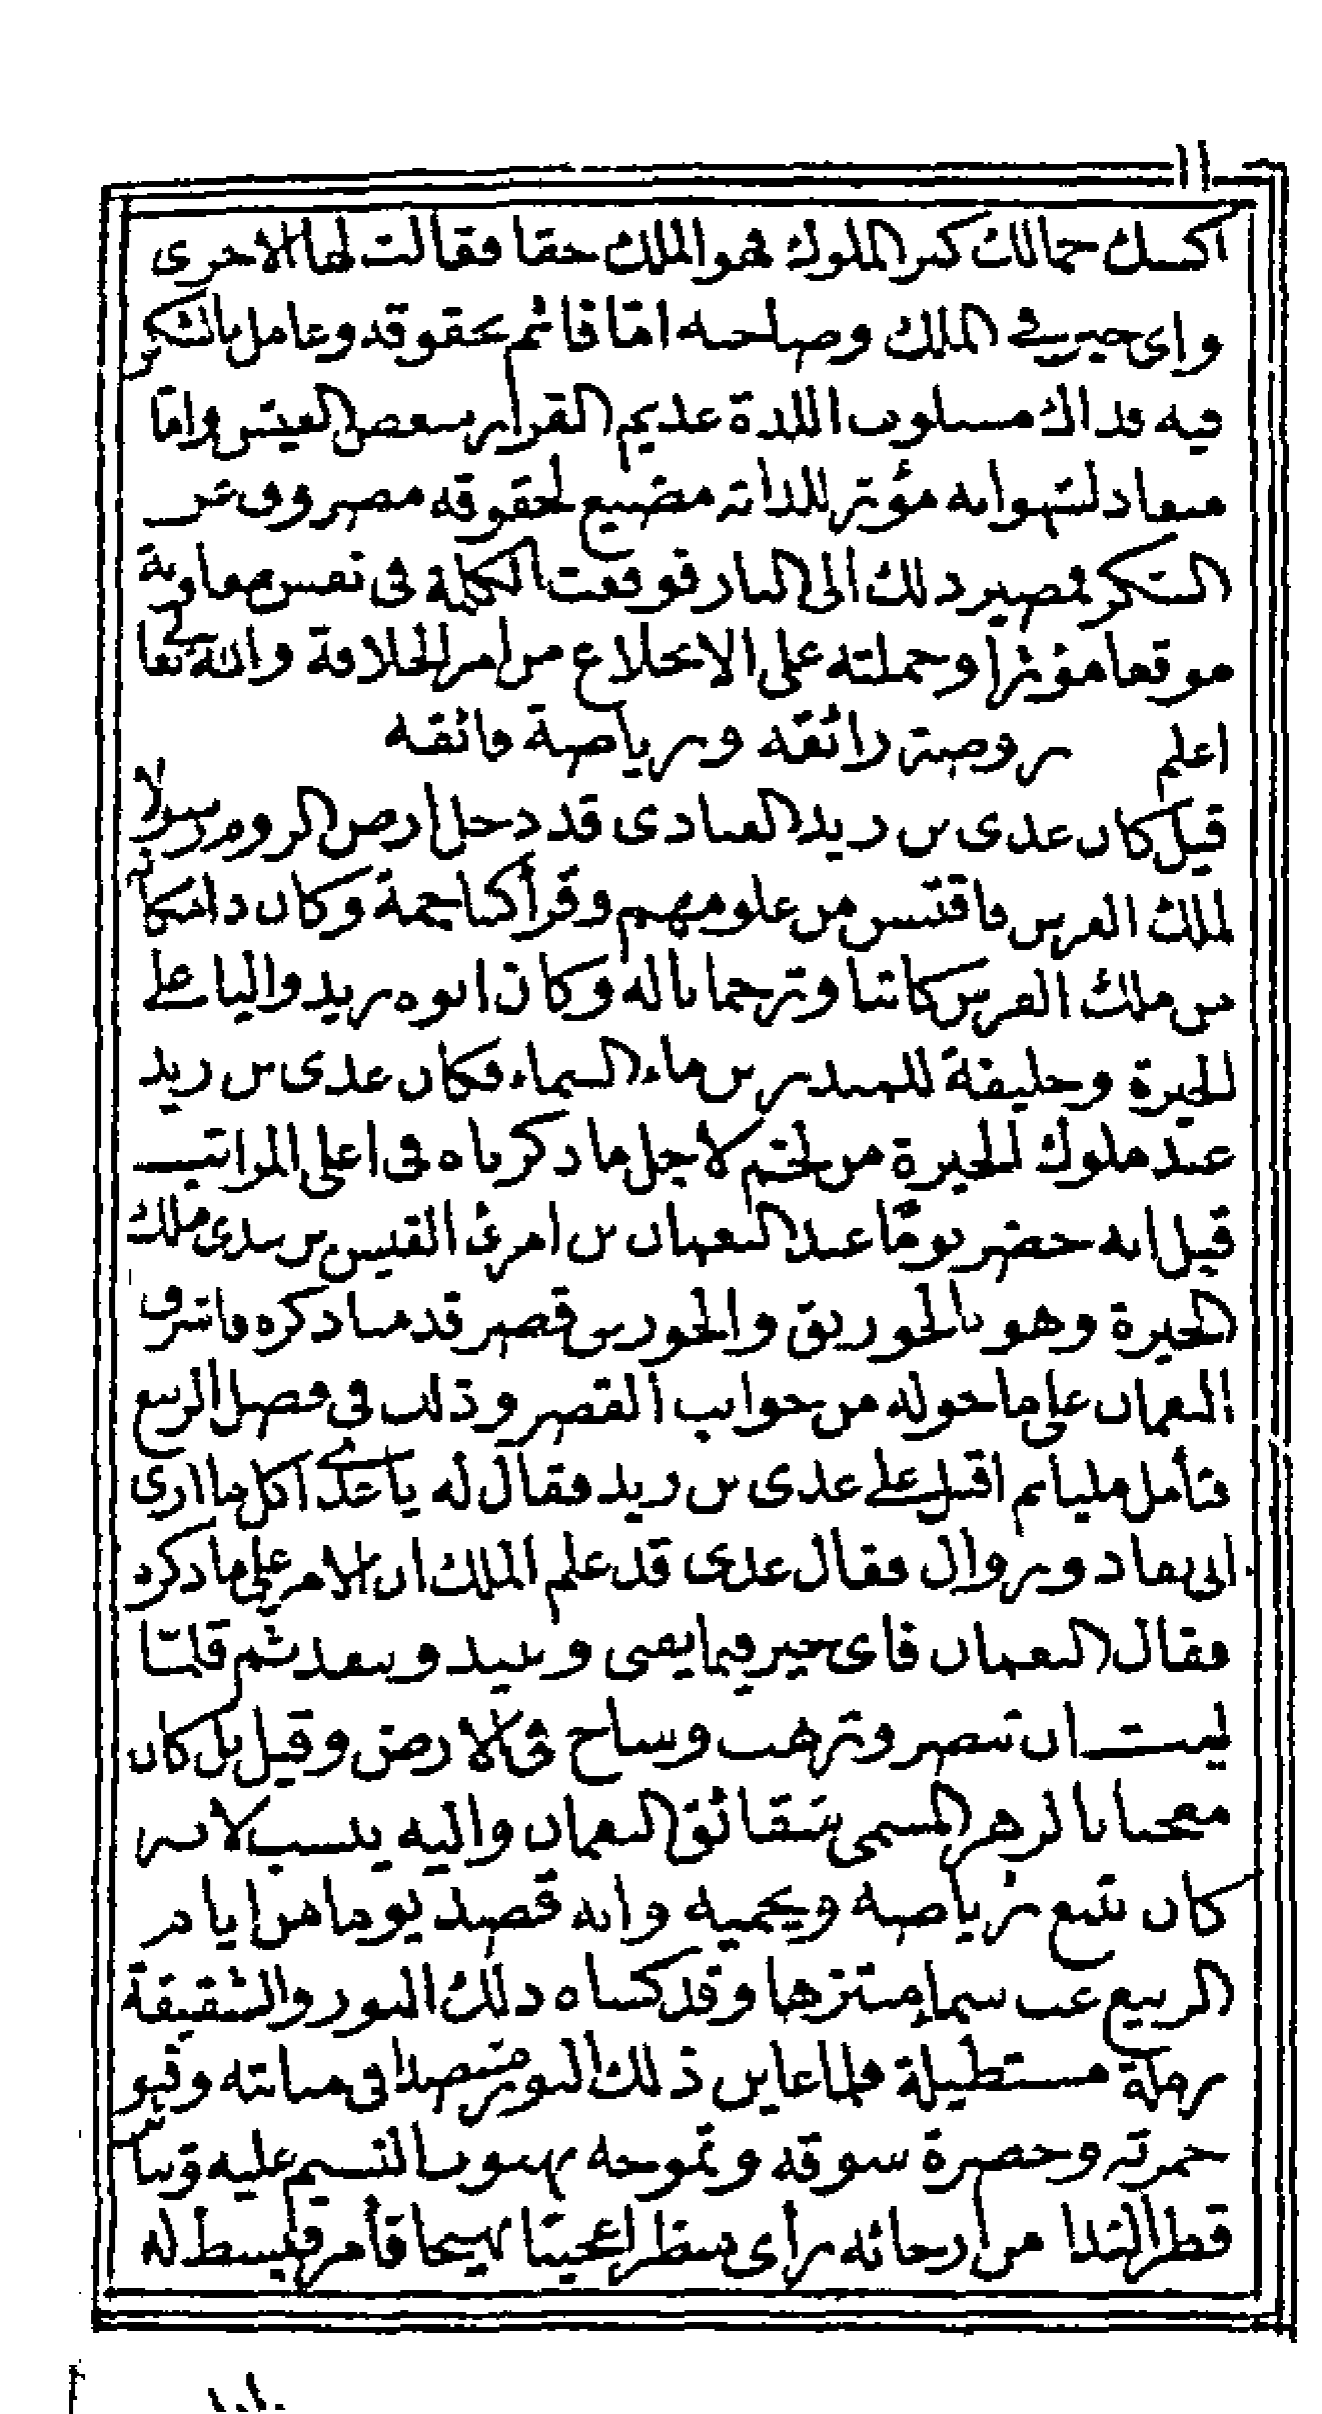 ١١
اكسل حمالك كبر الملوك فهو الملك حقا فقالت لها الاخرى
واى خير في الملك وصاحبه اما قائم بحقوقه وعامل بالشكر
فيه فذاك مسلوب اللذة عديم القرار منغص العيش واما
منقاد لشهواته مؤثر للذاته مضيع لحقوقه مصروف عن
الشكر فمصير ذلك الى النار فوقعت الكلمة فى نفس معاوية
موقعا مؤثرا وحملته على الانخلاع من امر الخلافة والله تعالى
اعلم روضة رائقه ورياضة فائقه
قيل كان عدى بن زيد العبادى قد دخل ارض الروم رسولا
لملك الفرس فاقتبس من علومهم وقرأ كتبا جمة وكان ذا مكانه
من ملك الفرس كاتبا وترجمانا له وكان ابوه زيد واليا على
الحيرة وخليفة للمنذر بن ماء السماء فكان عدى بن زيد
عند ملوك الحيرة من لخم لاجل ما ذكرناه فى اعلى المراتب
قيل انه حضر يوما عند النعمان بن امرئ القيس بن عدى ملك
الحيرة وهو بالخورنق والخورنق قصر قدمنا ذكره فاشرف
النعمان على ما حوله من جوانب القصر وذلك فى فصل الربيع
فتأمل مليا ثم اقبل على عدى بن زيد فقال له يا عدى اكل ما ارى
الى نفاد وزوال فقال عدى قد علم الملك ان الامر على ما ذكره
فقال النعمان فاى خير فيما يفنى ويبيد وينفد ثم قلما
لبث ان تنصر وترهب وساح فى الارض وقيل بل كان
معجبا بالزهر المسمى بشقائق النعمان واليه ينسب لانه
كان يتبع رياضه ويحميه وانه قصد يوما من ايام
الربيع غب سماء متنزها وقد كساه ذلك النور والشقيقة
رملة مستطيلة فلما عاين ذلك النور منضدا فى منابته وقنو
حمرته وخضرة سوقه وتموجه بهبوب النسيم عليه وتناثر
قطر الندا من ارجائه رأى منظرا عجيبا بهيجا فأمر فبسط له